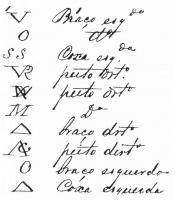 V Braço esq.do
O dto
S.S Coxa esq.da
VR peito Drt.o
N peito Drt.o
M D.o
Δ braço dirt.o
peito dirt.o
O braço esquerdo
Δ Coxa esquerda